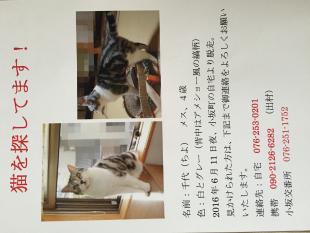 猫を探してます！
名前：千代（ちよ）　メス、4歳
色：白とグレー（背中はアメショー風の縞柄）
2016年6月11日夜、小坂町の自宅より脱走。
見かけられた方は、下記まで御連絡をよろしくお願い
いたします。
連絡先：自宅　076-253-0201
携帯　090-2126-6282　（出村）
小坂交番所　076-251-1752